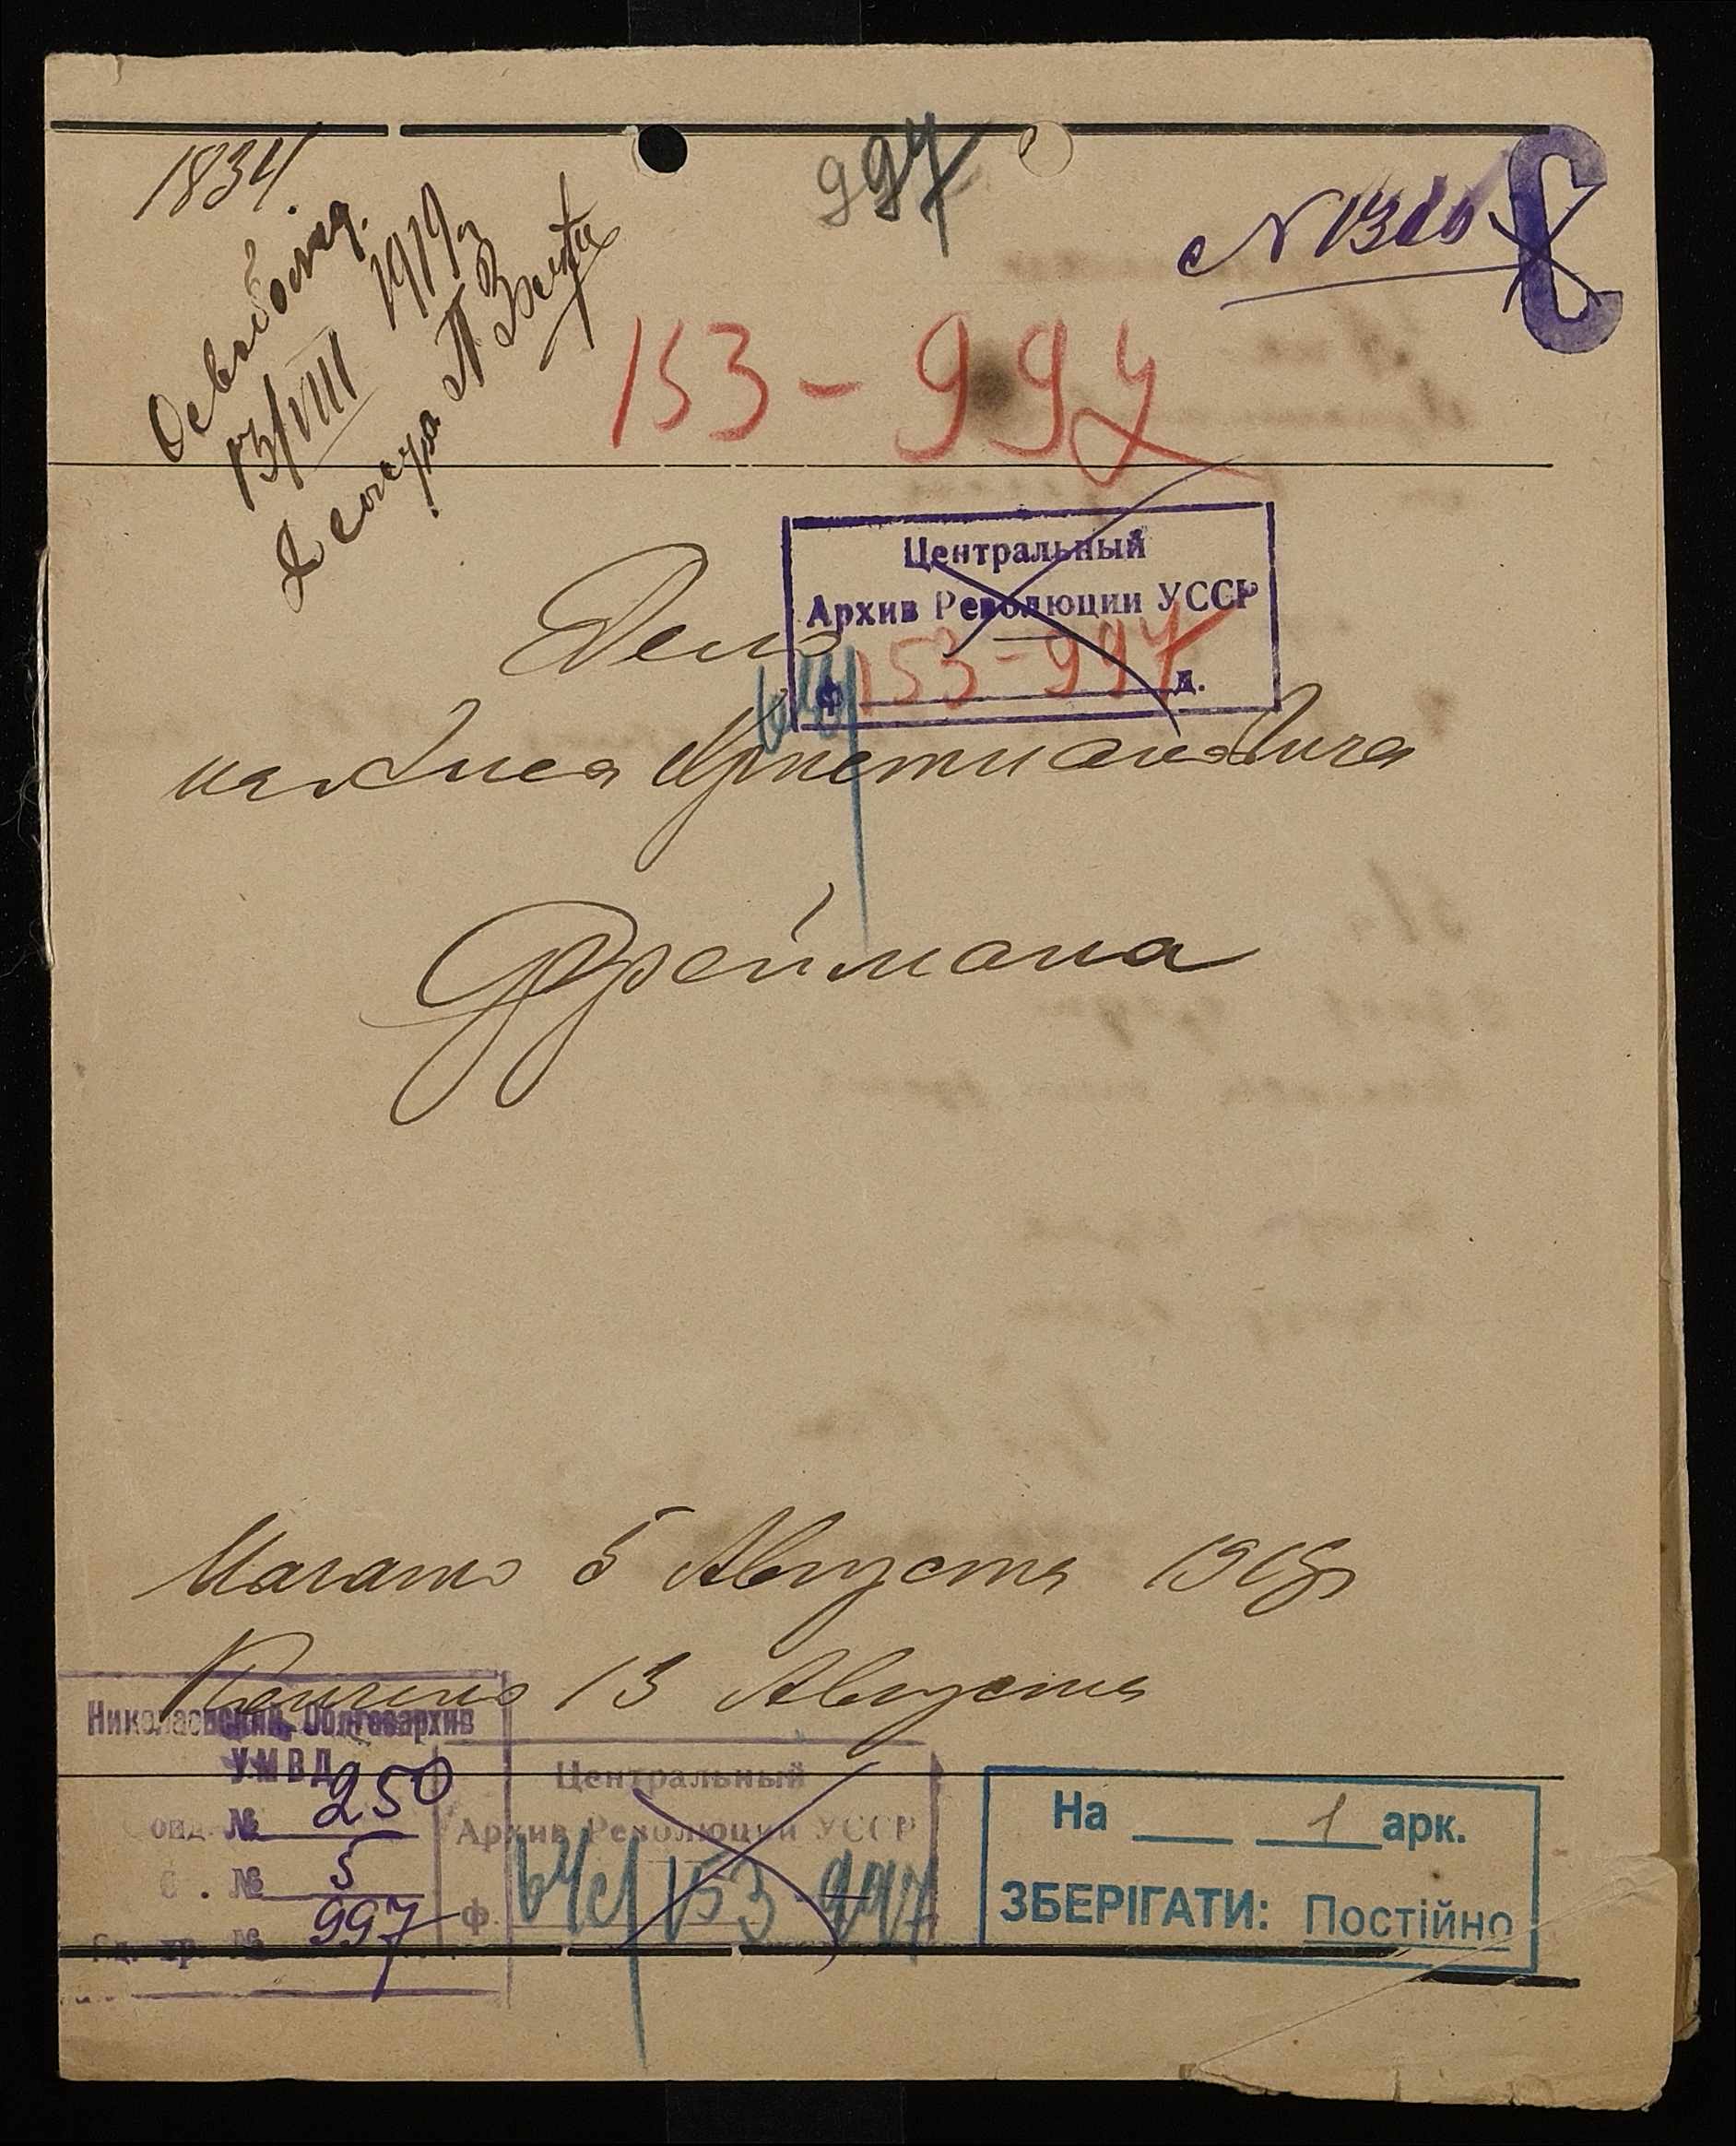 1834.
997
N 13
С
Освобожд.
13/VIII 1919 г.
153-997
Центральный
Архив Революции УССР
Ф 153-997 д.
Дело
Христиановича
Фреймана
Начато 5 Августа 1919 г
Кончено 13 Августа
Николаевский Облгосархив
УМВД
онд. № 250
№ 5
Ед. хр. № 997
Центральный
Архив Революции УССР
ф. 153-997
На 1 арк.
ЗБЕРІГАТИ: Постійно